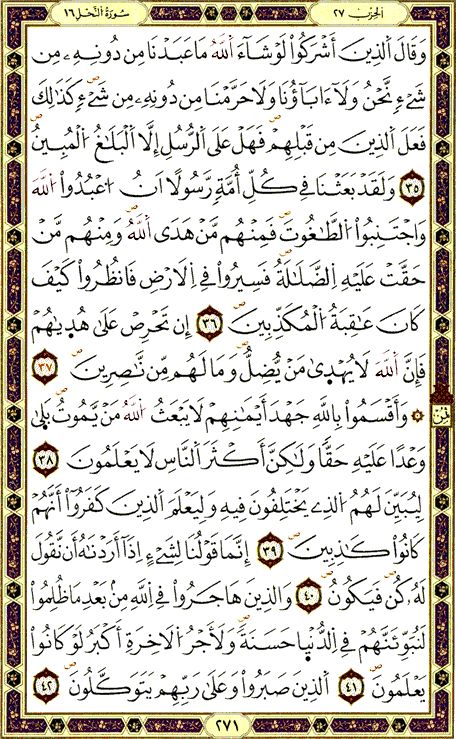 الحِزْبُ ٢٧ سُورَةُ النَّحْلِ ١٦
وَقَالَ اَلذِينَ أَشْرَكُواْ لَوْ شَآءَ اَللَّهُ مَا عَبَدْنَا مِن دُونِهِۦ مِن
شَےْءٍ نَّحْنُ وَلَآ ءَابَآؤُنَا وَلَا حَرَّمْنَا مِن دُونِهِۦ مِن شَےْءٍ كَذَٰلِكَ
فَعَلَ اَلذِينَ مِن قَبْلِهِمْ فَهَلْ عَلَى اَلرُّسُلِ إِلَّا اَلْبَلَٰغُ اُلْمُبِينُ
٣٥ وَلَقَدْ بَعَثْنَا فِے كُلِّ أُمَّةٍ رَّسُولًا اَنُ اُعْبُدُواْ اُللَّهَ
وَاجْتَنِبُواْ اُلطَّٰغُوتَ فَمِنْهُم مَّنْ هَدَى اَللَّهُ وَمِنْهُم مَّنْ
حَقَّتْ عَلَيْهِ اِلضَّلَٰلَةُ فَسِيرُواْ فِے اِلَارْضِ فَانظُرُواْ كَيْفَ
كَانَ عَٰقِبَةُ اُلْمُكَذِّبِينَ ٣٦ إِن تَحْرِصْ عَلَىٰ هُدَىٰهُمْ
فَإِنَّ اَللَّهَ لَا يُهْدَىٰ مَنْ يُّضِلُّ وَمَا لَهُم مِّن نَّٰصِرِينَ ٣٧
۞ وَأَقْسَمُواْ بِاللَّهِ جَهْدَ أَيْمَٰنِهِمْ لَا يَبْعَثُ اُللَّهُ مَنْ يَّمُوتُ بَلَىٰ
وَعْدًا عَلَيْهِ حَقًّا وَلَٰكِنَّ أَكْثَرَ اَلنَّاسِ لَا يَعْلَمُونَ ٣٨
لِيُبَيِّنَ لَهُمُ اُلذِے يَخْتَلِفُونَ فِيهِ وَلِيَعْلَمَ اَلذِينَ كَفَرُوٓاْ أَنَّهُمْ
كَانُواْ كَٰذِبِينَ ٣٩ إِنَّمَا قَوْلُنَا لِشَےْءٍ اِذَآ أَرَدْنَٰهُ أَن نَّقُولَ
لَهُۥ كُن فَيَكُونُ ٤٠ وَالذِينَ هَاجَرُواْ فِے اِللَّهِ مِنۢ بَعْدِ مَا ظُلِمُواْ
لَنُبَوِّئَنَّهُمْ فِے اِلدُّنْيَا حَسَنَةً وَلَأَجْرُ اُلَاخِرَةِ أَكْبَرُ لَوْ كَانُواْ
يَعْلَمُونَ ٤١ اَلذِينَ صَبَرُواْ وَعَلَىٰ رَبِّهِمْ يَتَوَكَّلُونَ ٤٢
٢٧١